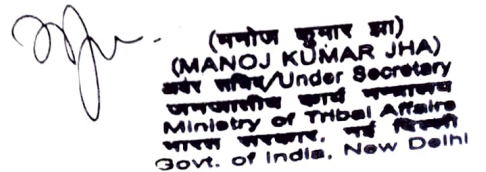 (मनोज कुमार झा)
(MANOJ KUMAR JHA)
अवर सचिव/Under Secretary
जनजातीय कार्य मन्त्रालय
Ministry of Tribal Affairs
भारत सरकार, नई दिल्ली
Govt. of India, New Delhi